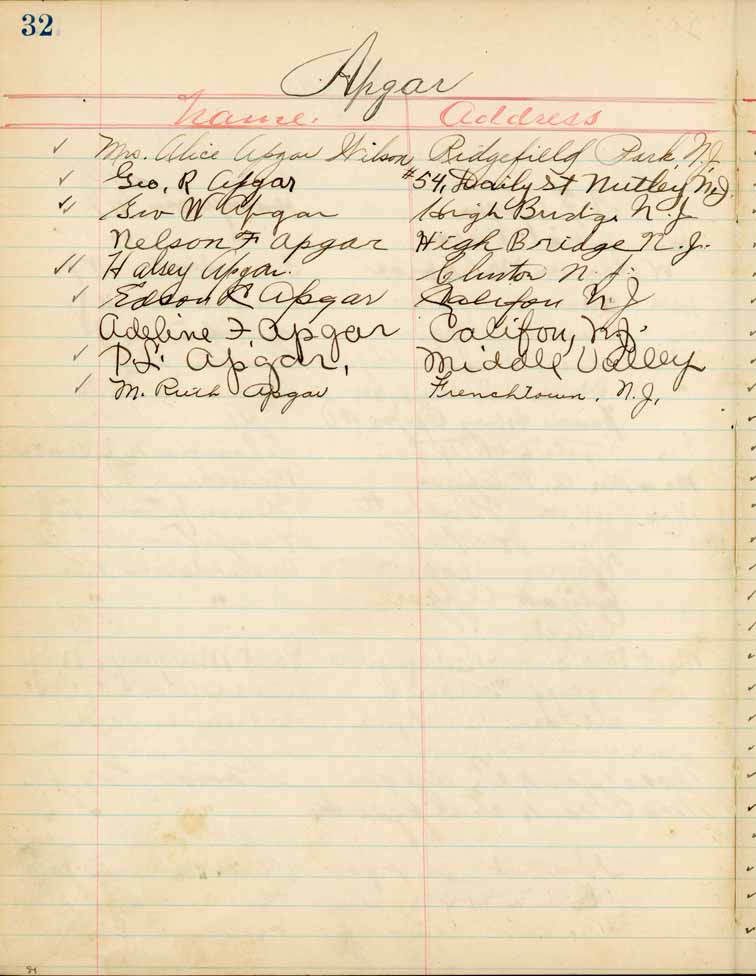 32
Apgar
Name. Address
Mrs. Alice Apgar Wilson Ridgefield Park, N.J.
Geo. R Apgar #54, Daily St Nutley N.J.
Geo W Apgar High Bridge N.J.
Nelson F Apgar High Bridge N.J.
Halsey Apgar. Clinton N.J.
Edson R Apgar Califon N J
Adeline F. Apgar Califon, N.J.
P.L. Apgar, Middle Valley
M. Ruth Apgar Frenchtown, N.J.